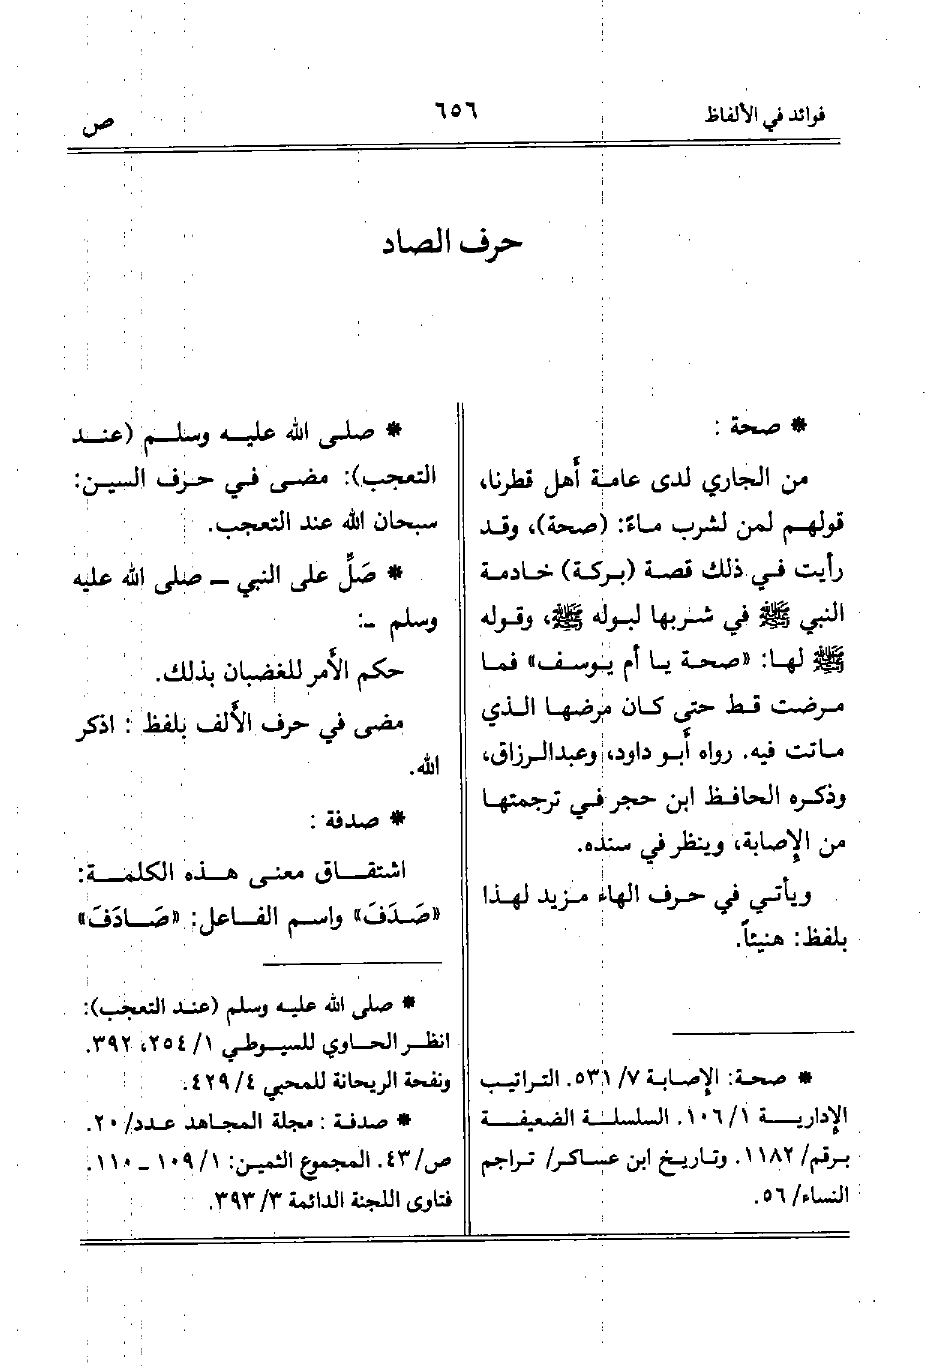 فوائد في الألفاظ
٦٥٦
ص
حرف الصاد
* صحة :
من الجاري لدى عامة أهل قطرنا،
قولهم لمن لشرب ماءً: (صحة)، وقد
رأيت في ذلك قصة (بركة) خادمة
النبي ﷺ في شربها لبوله ﷺ، وقوله
ﷺ لها: «صحة يا أم يوسف» فما
مرضت قط حتى كان مرضها الذي
ماتت فيه. رواه أبو داود، وعبدالرزاق،
وذكره الحافظ ابن حجر في ترجمتها
من الإصابة، وينظر في سنده.
ويأتي في حرف الهاء مزيد لهذا
بلفظ: هنيئاً.
* صحة: الإصابة ٧/ ٥٣١. التراتيب
الإدارية ١/ ١٠٦. السلسلة الضعيفة
برقم/ ١١٨٢. وتاريخ ابن عساكر/ تراجم
النساء/ ٥٦.
* صلى الله عليه وسلم (عند
التعجب): مضى في حرف السين:
سبحان الله عند التعجب.
* صَلِّ على النبي ـ صلى الله عليه
وسلم ـ:
حكم الأمر للغضبان بذلك.
مضى في حرف الألف بلفظ : اذكر
الله.
* صدفة :
اشتقاق معنى هذه الكلمة:
«صَدَفَ» واسم الفاعل: «صَادَفَ»
* صلى الله عليه وسلم (عند التعجب):
انظر الحاوي للسيوطي ١/ ٢٥٤، ٣٩٢.
ونفحة الريحانة للمحبي ٤/ ٤٢٩.
* صدفة : مجلة المجاهد عدد/ ٢٠.
ص/ ٤٣. المجموع الثمين: ١/ ١٠٩ ـ ١١٠.
فتاوى اللجنة الدائمة ٣/ ٣٩٣.